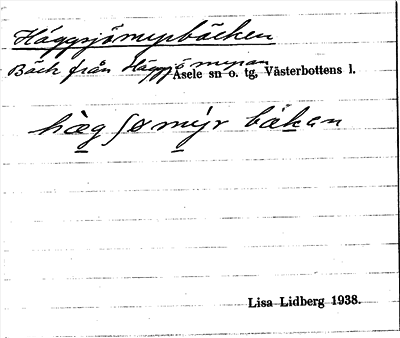 Häggsjömyrbäcken
Bäck från Häggsjömyran
Åsele sn o. tg, Västerbottens l.
hὰg ʃø mýr bäkan
Lisa Lidberg 1938.